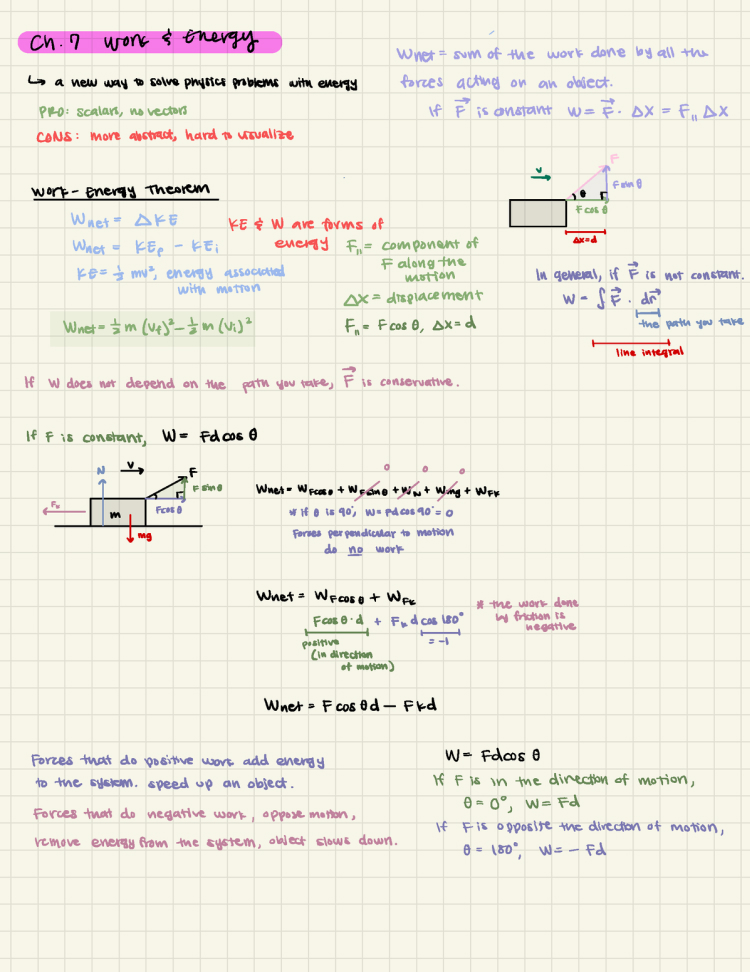 Ch. 7 Work & Energy
↳ a new way to solve physics problems with energy
PRO: scalars, no vectors
CONS: more abstract, hard to visualize
Wnet = sum of the work done by all the
forces acting on an object.
If F⃗ is constant W = F⃗ · Δx = F∥ Δx
v
F
θ
F sin θ
F cos θ
Δx=d
Work-Energy Theorem
Wnet = ΔKE
Wnet = KEf - KEi
KE = ½ mv², energy associated
with motion
Wnet = ½ m (vf)² - ½ m (vi)²
KE & W are forms of
energy
F∥ = component of
F along the
motion
Δx = displacement
F∥ = F cos θ, Δx = d
In general, if F⃗ is not constant.
W = ∫ F⃗ · dr⃗
the path you take
line integral
If W does not depend on the path you take, F⃗ is conservative.
If F is constant, W = Fd cos θ
N
v
F
F sin θ
Fcos θ
Fk
m
mg
0 0 0
Wnet = WFcosθ + WFsinθ + WN + Wmg + WFk
* if θ is 90°, W= Fd cos 90° = 0
Forces perpendicular to motion
do no work
Wnet = WFcos θ + WFk
Fcos θ · d + Fk d cos 180°
positive
(in direction
of motion)
= -1
* the work done
by friction is
negative
Wnet = F cos θ d - Fkd
Forces that do positive work add energy
to the system. speed up an object.
Forces that do negative work, oppose motion,
remove energy from the system, object slows down.
W = Fd cos θ
If F is in the direction of motion,
θ = 0°, W = Fd
If F is opposite the direction of motion,
θ = 180°, W = - Fd